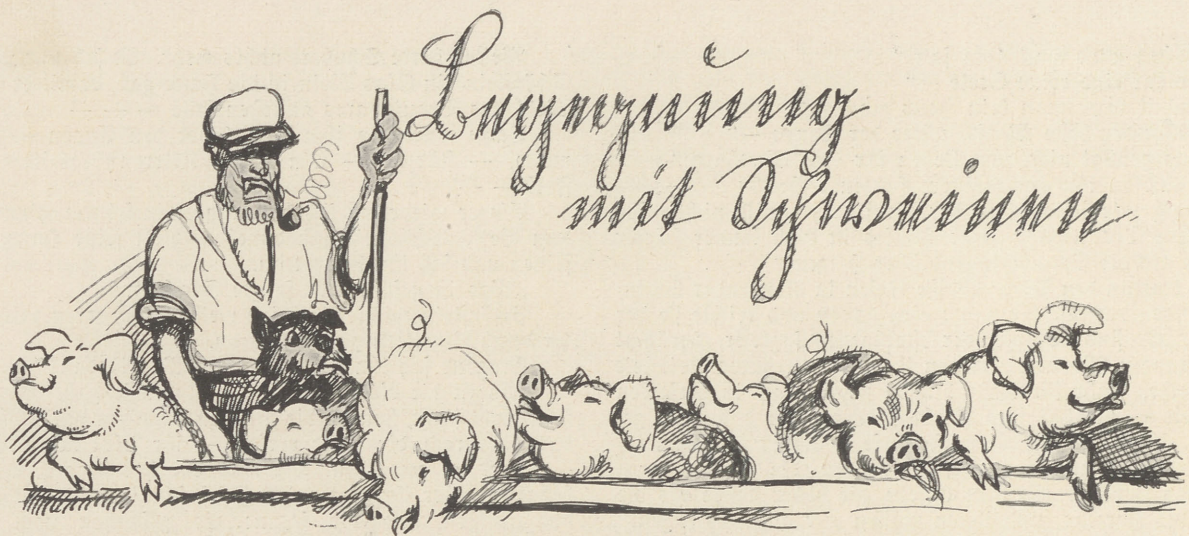 Begegnung
mit Schweinen